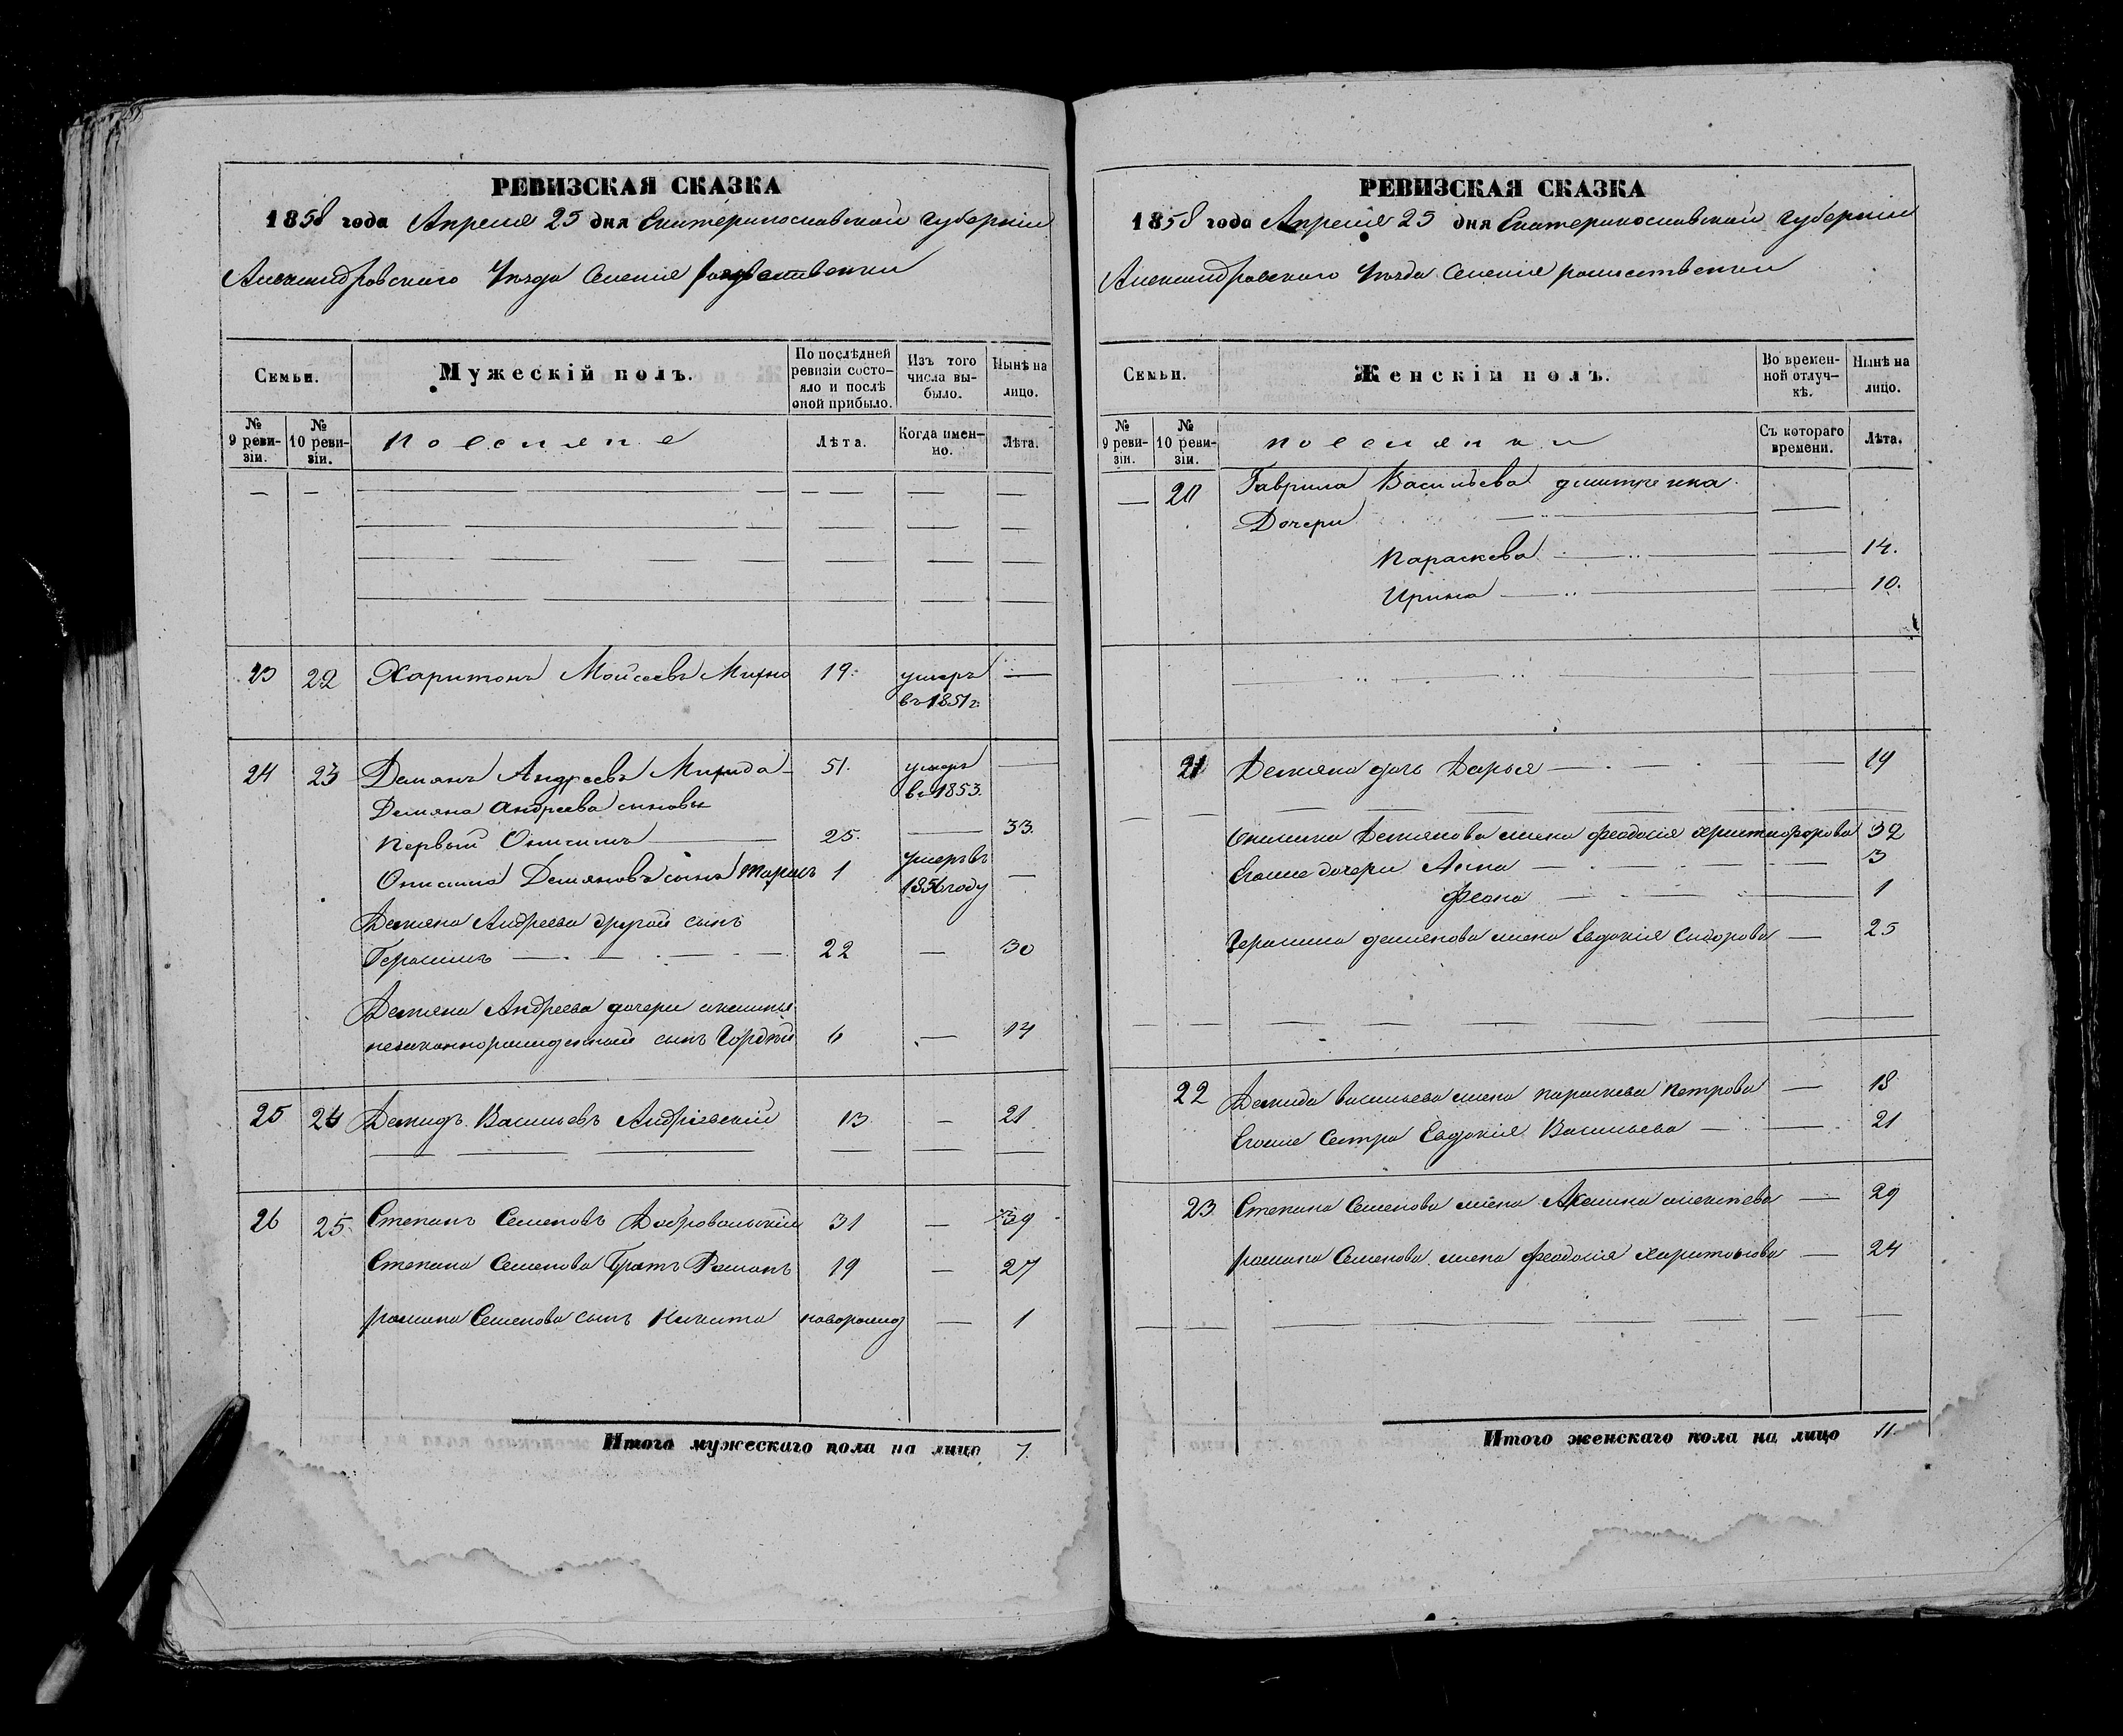 РЕВИЗСКАЯ СКАЗКА
1858 года Апреля 25 дня Екатеринославской губернии
Александровского Уезда Селения
Семьи.
Мужескій полъ.
По послѣдней ревизіи состо-
яло и послѣ
оной прибыло.
Изъ того
числа вы-
было.
Нынѣ на
лицо.
№
9 реви-
зіи.
№
10 реви-
зіи.
Поселяне
Лѣта.
Когда имен-
но.
Лѣта.
23 22 Харитонъ Мойсеевъ Михно 19. умеръ
въ 1851 г.
24 23 Демянъ Андреевъ 51. умеръ
въ 1853.
Демяна Андреева сыновья
Первый Онисимъ 25. 33.
Онисима Демяновъ сынъ Тарасъ 1 умеръ въ
1856 году
Демяна Андреева другой сынъ
Герасимъ 22 30
Демяна Андреева дочери
незаконнорожденный сынъ Гордѣй 6 14
25 24 Демидъ Васильевъ Андріевскій 13 21
26 25 Степанъ Семеновъ Добровольскій 31 39
Степана Семенова Братъ Романъ 19 27
Романа Семенова сынъ Никита новорожд 1
Итого мужескаго пола на лицо 7.
РЕВИЗСКАЯ СКАЗКА
1858 года Апреля 25 дня Екатеринославской губернии
Александровского Уезда Селения рождественки
Семьи.
Женскій полъ.
Во времен-
ной отлуч-
кѣ.
Нынѣ на
лицо.
№
9 реви-
зіи.
№
10 реви-
зіи.
поселянки
Съ котораго
времени.
Лѣта.
20 Гаврила Васильева
Дочери
Параскева 14.
Ирина 10.
21 Демяна дочь Дарья 19
Онисима Демянова жена Феодосія Христофорова 32
Егоже дочери Анна 3
1
Герасима демянова жена Евдокія Сидорова 25
22 Демида Васильева жена параскева Петрова 18
Егоже Сестра Евдокія Васильева 21
23 Степана Семенова жена 29
Романа Семенова жена Феодосія Харитонова 24
Итого женскаго пола на лицо 11.